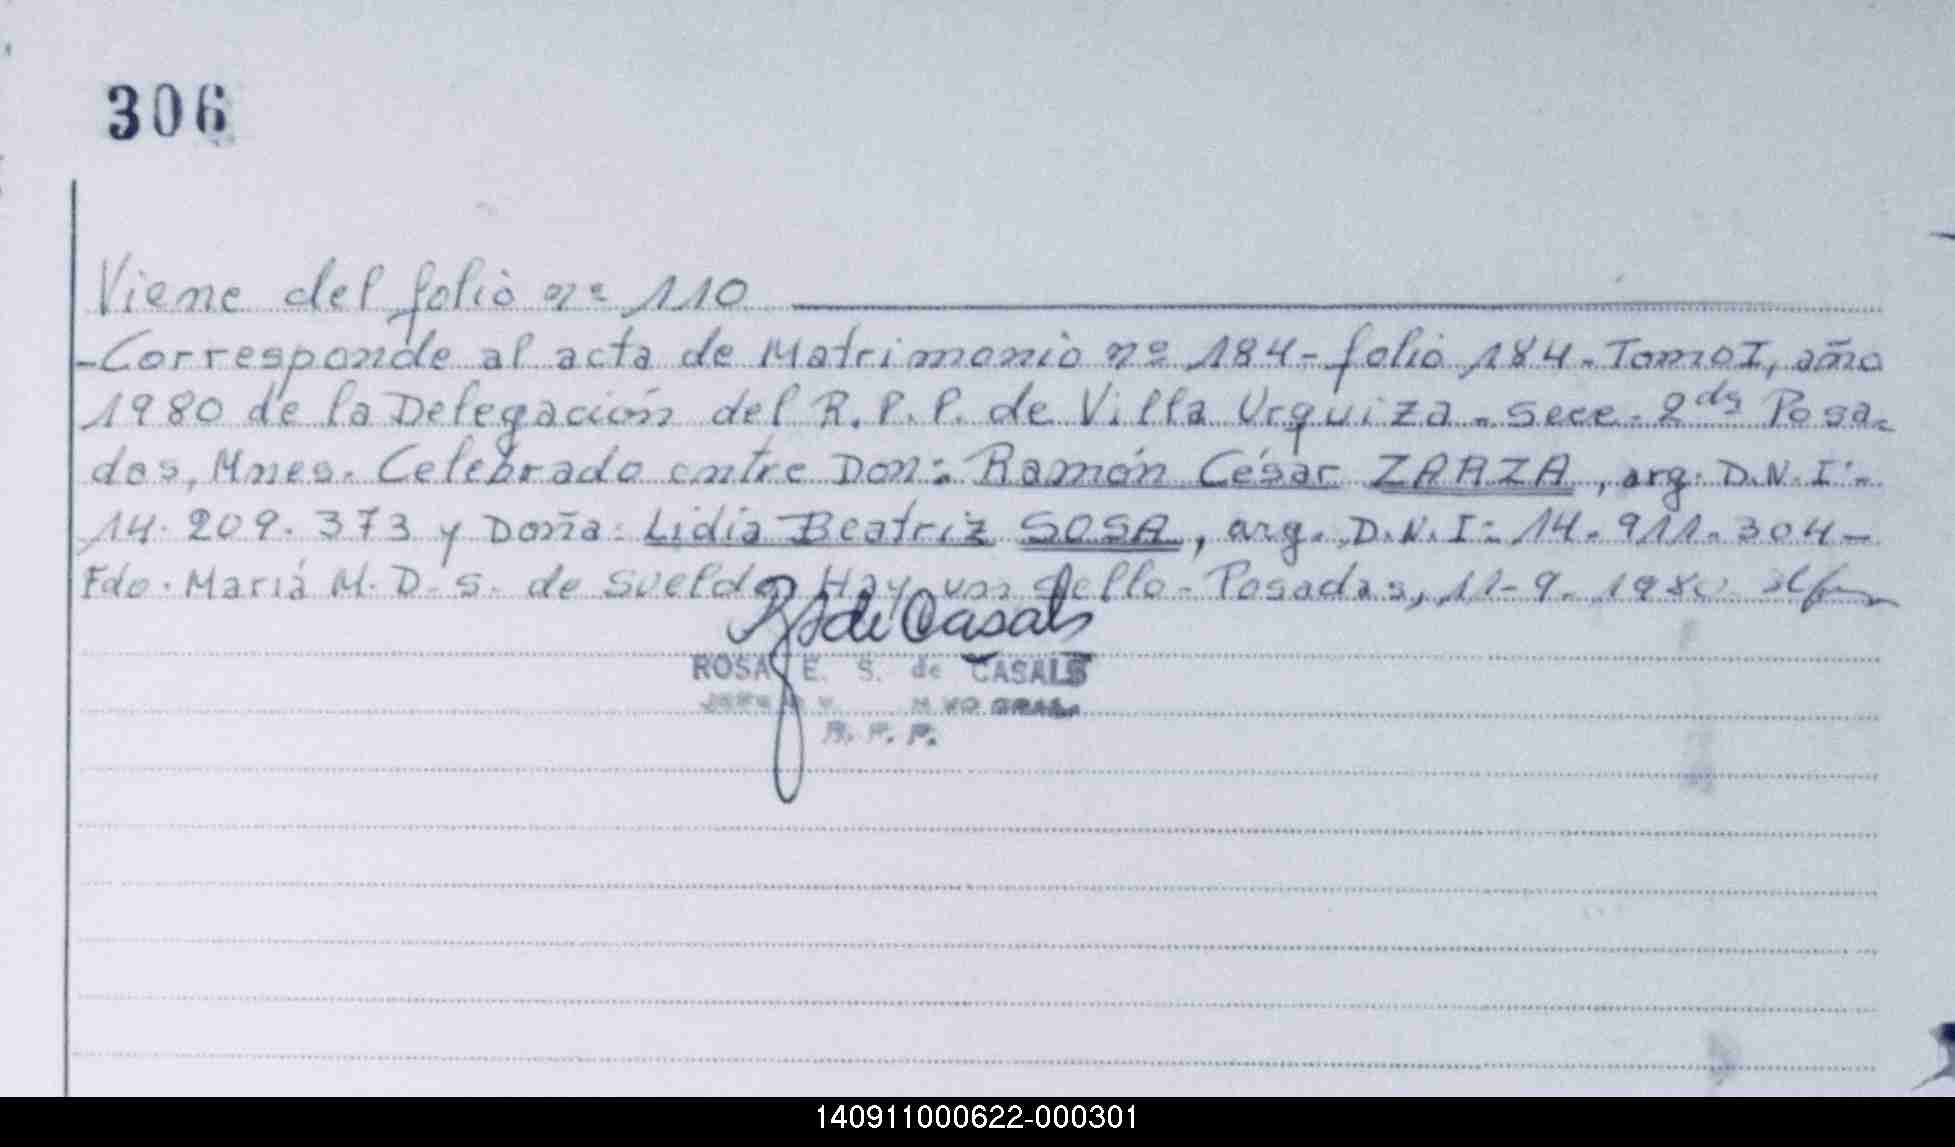 306
Viene del folio nº 110
-Corresponde al acta de Matrimonio nº 184- folio 184. Tomo I, año
1980 de la Delegación del R. P. P. de Villa Urquiza - Secc. 2da Posa-
das, Mnes. Celebrado entre Don: Ramón César ZARZA, arg. D.N.I:-
14.209.373 y Doña: Lidia Beatriz SOSA, arg. D.N.I: 14.911.304-
Fdo. María M. D. S. de Sueldo. Hay un sello - Posadas, 11-9-1980
de Casals
ROSA E. S. de CASALS
R. P. P.
140911000622-000301